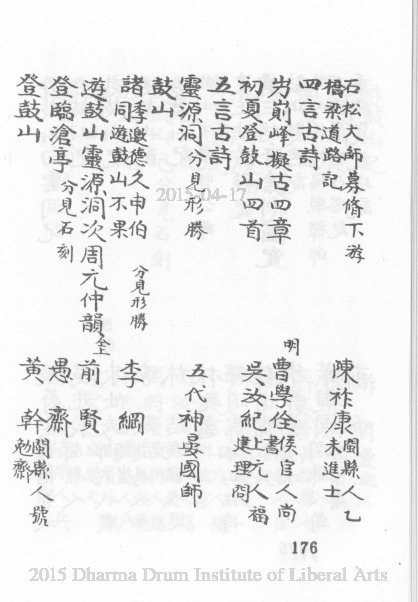 石松大師募脩下游
橋梁道路記 陳祚康 閩縣人乙未進士
四言古詩
屴崱峰擬古四章 明 曹學佺 侯官人尚書
初夏登鼓山四首 吳汝紀 上元人福建理問
五言古詩
靈源洞 分見形勝 五代神晏國師
鼓山
諸季邀德久申伯
同遊鼓山不果 分見形勝 李綱
遊鼓山靈源洞次周元仲韻 仝前
登臨滄亭 分見石刻 愚齋
登鼓山 黃榦 閩縣人號勉齋
2015-04-17
176
2015 Dharma Drum Institute of Liberal Arts